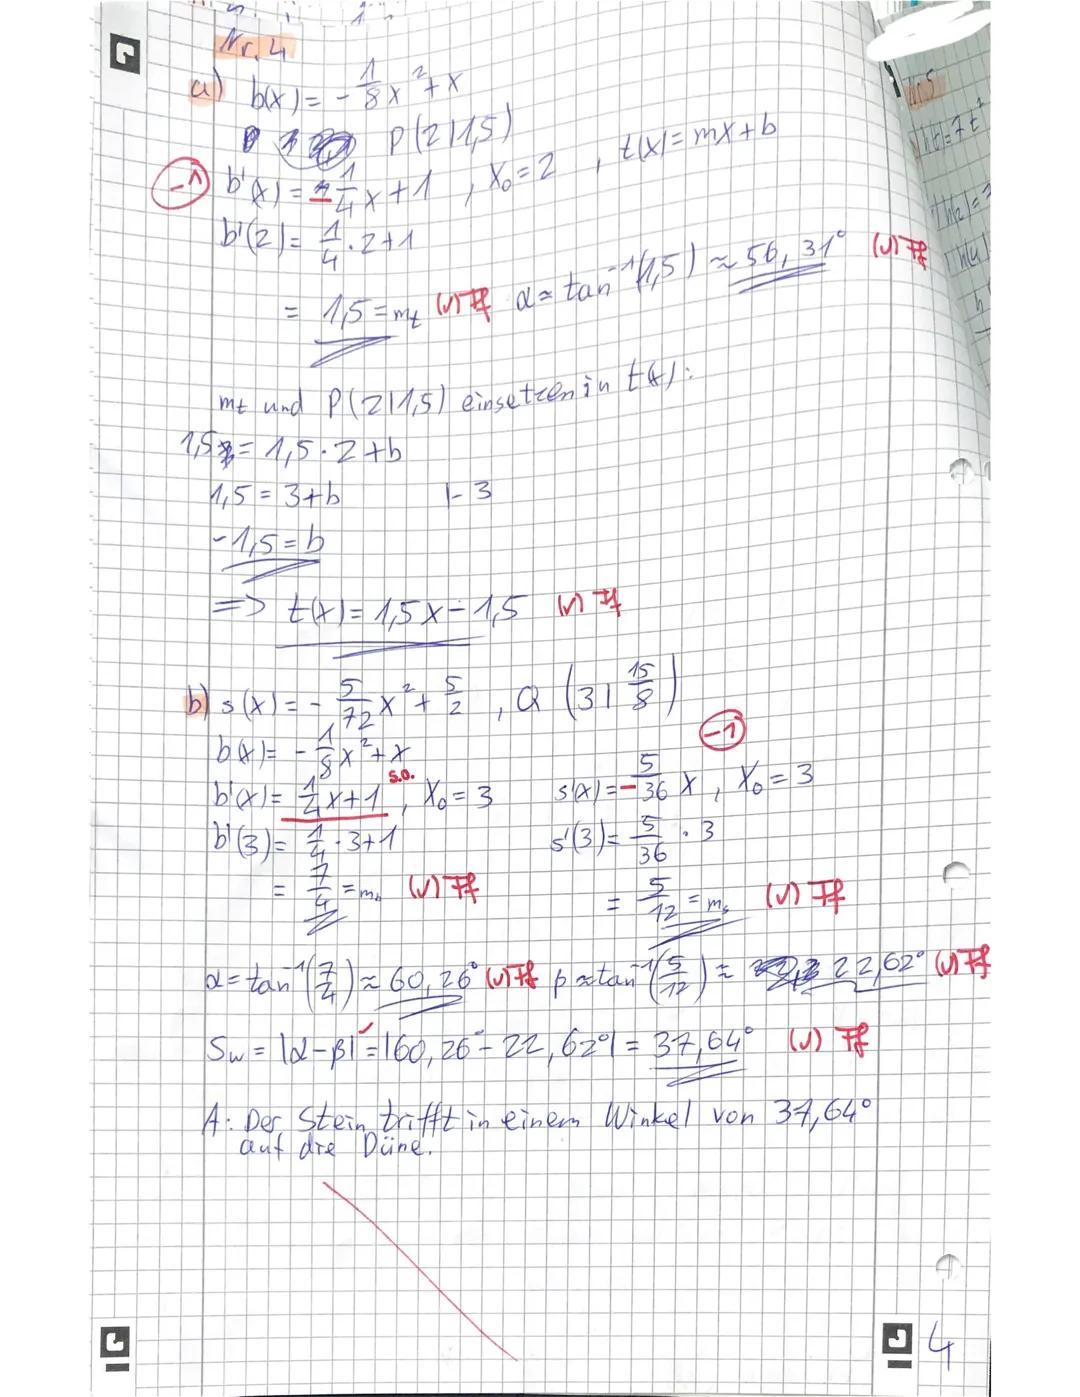 Nr. 4
a) b(x) = - 1/8 x² + x
P(2|1,5)
-1 b'(x) = - 1/4 x + 1 , x₀ = 2 , t(x) = mx + b
b'(2) = 1/4 · 2 + 1
= 1,5 = mₜ (√) Ff α ≈ tan⁻¹(1,5) ≈ 56,31° (√) Ff
mₜ und P(2|1,5) einsetzen in t(x):
1,5 = 1,5 · 2 + b
1,5 = 3 + b |- 3
-1,5 = b
=> t(x) = 1,5x - 1,5 (√) Ff
b) s(x) = - 5/72 x² + 5/2 , Q (3 | 15/8)
b(x) = - 1/8 x² + x
-1
b'(x) = 1/4 x + 1 s.o. , x₀ = 3 s'(x) = - 5/36 x , x₀ = 3
b'(3) = 1/4 · 3 + 1 s'(3) = 5/36 · 3
= 7/4 = m_b (√) Ff = 5/12 = mₛ (√) Ff
α = tan⁻¹(7/4) ≈ 60,26° (√) Ff β ≈ tan⁻¹(5/12) ≈ 22,62° (√) Ff
Sw = |α - β| ✓ = |60,26° - 22,62°| = 37,64° (√) Ff
A: Der Stein trifft in einem Winkel von 37,64°
auf die Düne.
4
Nr. 5
h(t) = 7t²